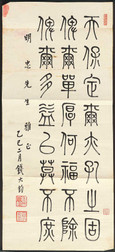 天保定爾亦孔之固
俾爾單厚何福不除
俾爾多益以莫不庶
明忠先生 雅正
乙巳二月錢大鈞